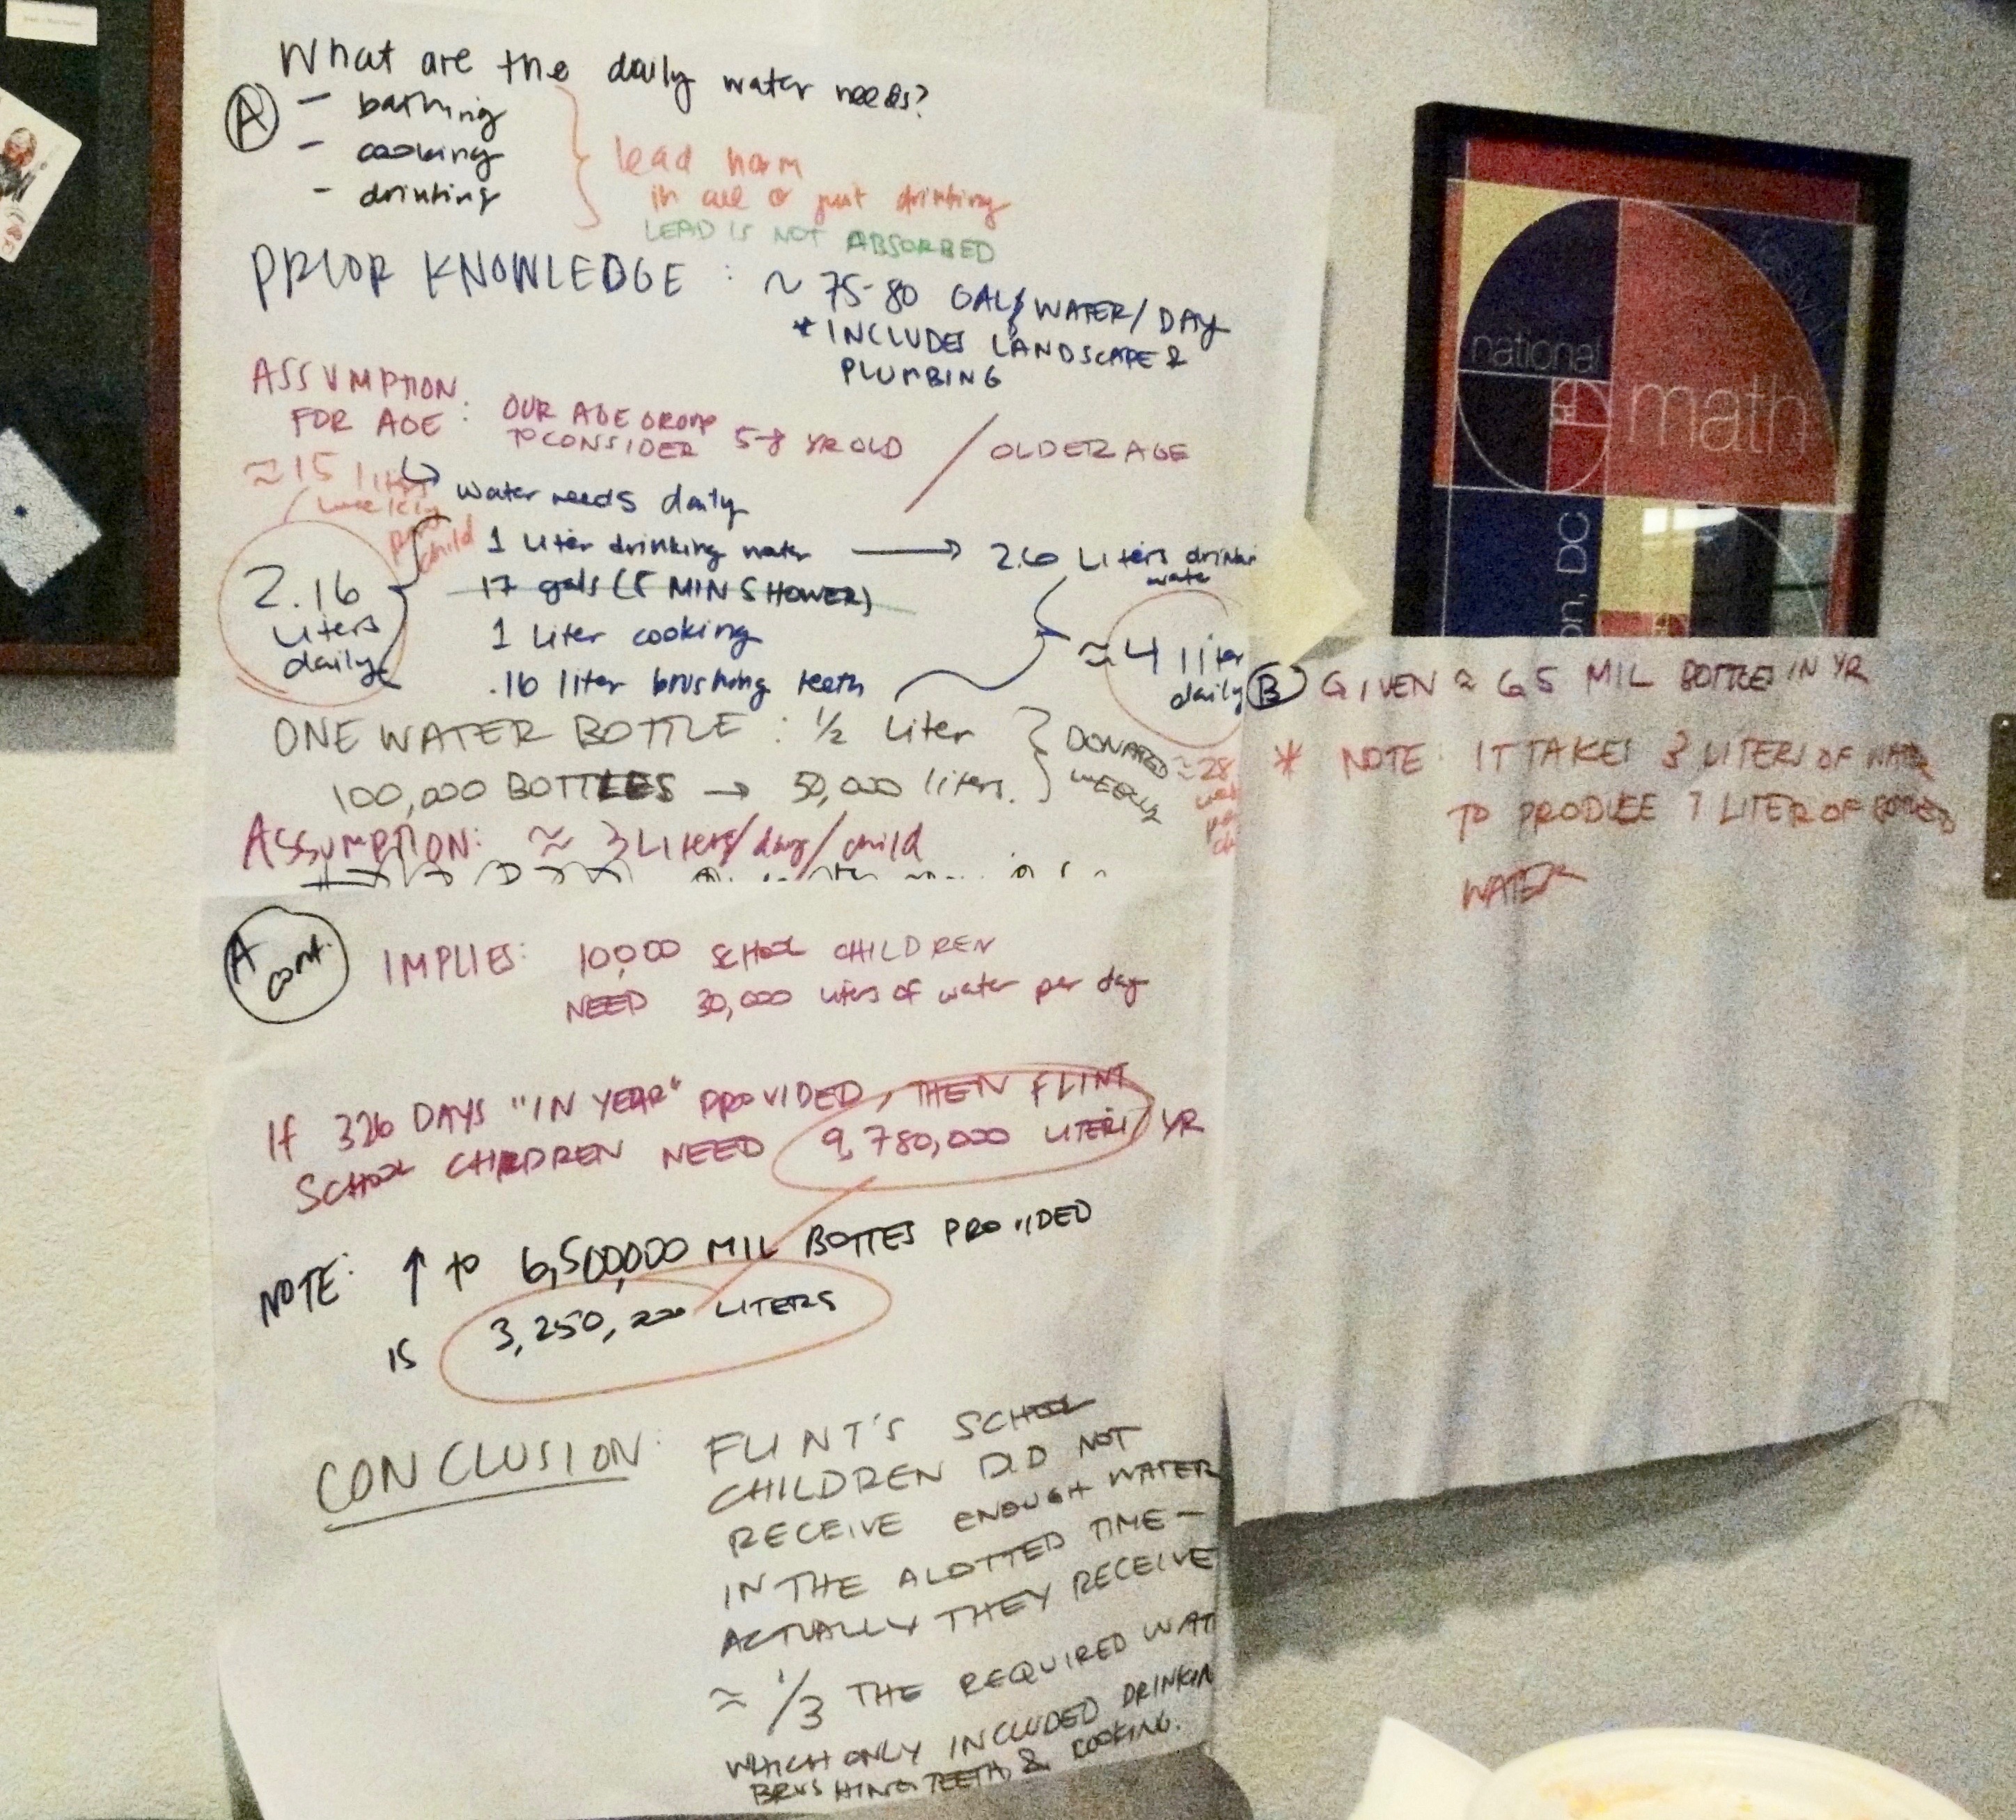 What are the daily water needs?
A
- bathing
- cooking
- drinking
lead harm
in all or just drinking
LEAD IS NOT ABSORBED
PRIOR KNOWLEDGE : ~ 75-80 GAL WATER/DAY
* INCLUDES LANDSCAPE &
PLUMBING
ASSUMPTION
FOR AGE : OUR AGE GROUP
TO CONSIDER 5-8 YR OLD / OLDER AGE
≈15 liters
weekly
per
child
water needs daily
2.16
Liters
daily
1 Liter drinking water → 2.6 Liters
water
17 gals (5 MIN SHOWER)
1 Liter cooking
.16 liter brushing teeth
≈4 liter
daily
ONE WATER BOTTLE : 1/2 Liter
100,000 BOTTLES → 50,000 liters.
DONATED
WEEKLY
≈28
ASSUMPTION: ≈ 3 Liters/day/child
A
cont.
IMPLIES: 10,000 SCHOOL CHILDREN
NEED 30,000 liters of water per day
If 326 DAYS "IN YEAR" PROVIDED, THEN FLINT
SCHOOL CHILDREN NEED 9,780,000 LITERS/YR
NOTE: ↑ to 6,500,000 MIL BOTTES PROVIDED
IS 3,250,000 LITERS
CONCLUSION: FLINT'S SCHOOL
CHILDREN DID NOT
RECEIVE ENOUGH WATER
IN THE ALOTTED TIME-
ACTUALLY THEY RECEIVE
≈ 1/3 THE REQUIRED WAT
WHICH ONLY INCLUDED DRINKIN
BRUSHING TEETH, & COOKING.
B GIVEN ≈ 6.5 MIL BOTTLES IN YR
* NOTE: IT TAKES 3 LITERS OF WATER
TO PRODUCE 1 LITER OF BOTTLED
WATER
national
math
on, DC